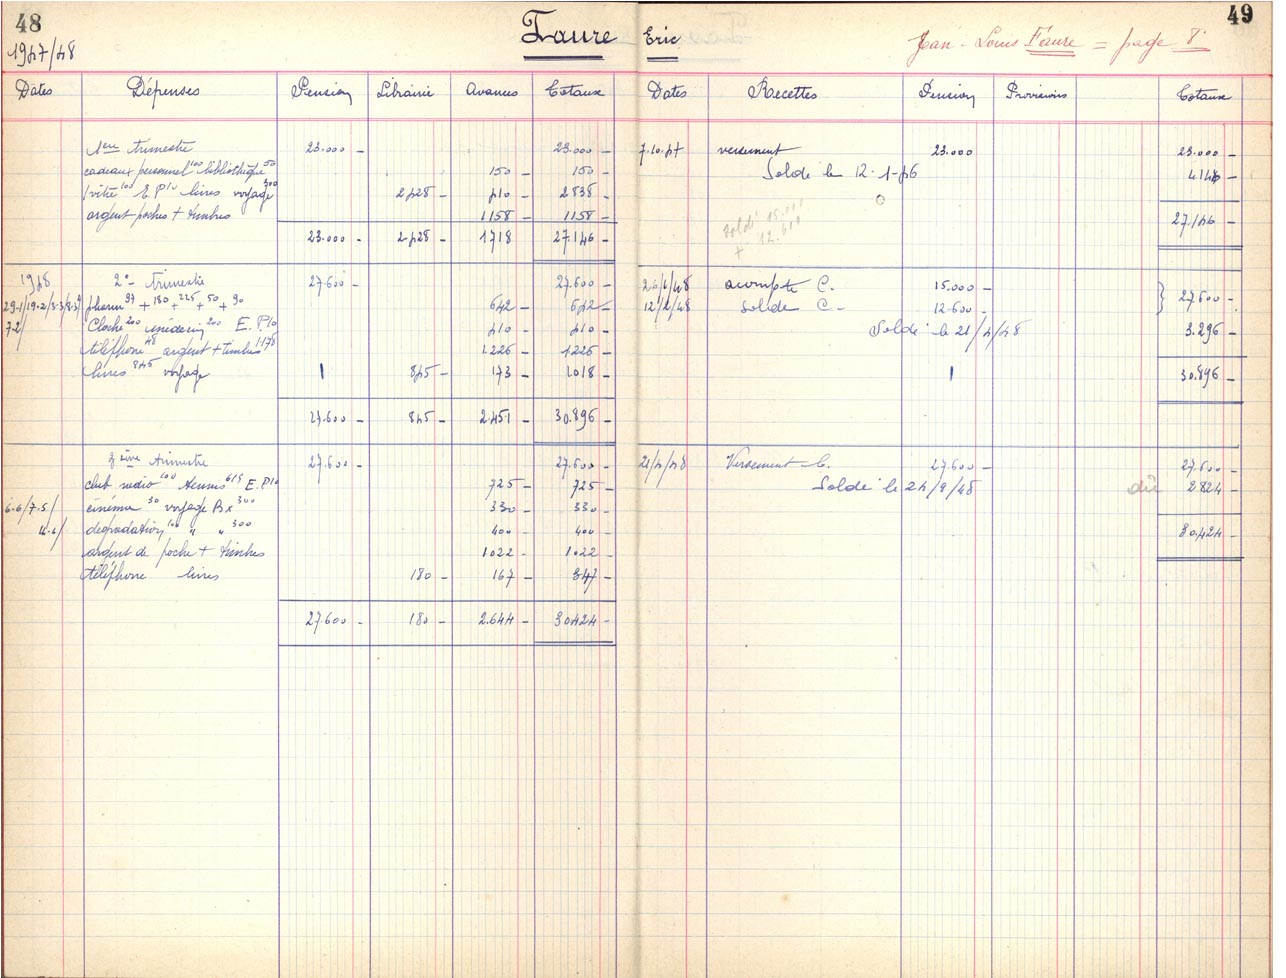 48
1947/48
Faure
Dates Dépenses Pension Librairie Avances Totaux
1er trimestre 23.000 - 23.000 -
cadeaux personnel 100 bibliothèque 50 150 - 150 -
vitre 100 E.P 10 livres voyage 300 2428 - 410 - 2838 -
argent poches + timbres 1158 - 1158 -
23.000 - 2428 - 1718 27.146 -
1948 2e trimestre 27.600 - 27.600 -
29-1/19-2/3-3/8-3 pharm 97 + 180 + 225 + 50 + 90 642 - 642 -
7-2/ Cloche 200 médecin 200 E.P.10 410 - 410 -
téléphone 48 argent + timbres 1.178 1.226 - 1226 -
livres 845 voyage 845 - 173 - 1018 -
27.600 - 845 - 2.451 - 30.896 -
3ème trimestre 27.600 - 27.600 -
club radio 100 tennis 615 E.P10 725 - 725 -
6-6/7.5/ cinéma 30 voyage Bx 300 330 - 330 -
dégradation 100 " " 300 400 - 400 -
argent de poche + timbres 1.022 - 1.022 -
téléphone livres 180 - 167 - 347 -
27.600 - 180 - 2.644 - 30.424 -
49
Eric
Jean-Louis Faure = page 8
Dates Recettes Pension Provisions Totaux
7.10.47 versement 23.000 23.000 -
Solde le 12-1- 4146 -
27.146 -
solde 15.000
+ 12.600
/48 acompte C. 15.000 -
12/2/48 solde C. - 12.600 - } 27.600 -
Solde le 21/4/48 3.296 -
30.896 -
21/4/48 Versement C. 27.600 - 27.600 -
Solde le 24/9/48 dû 2824 -
30.424 -